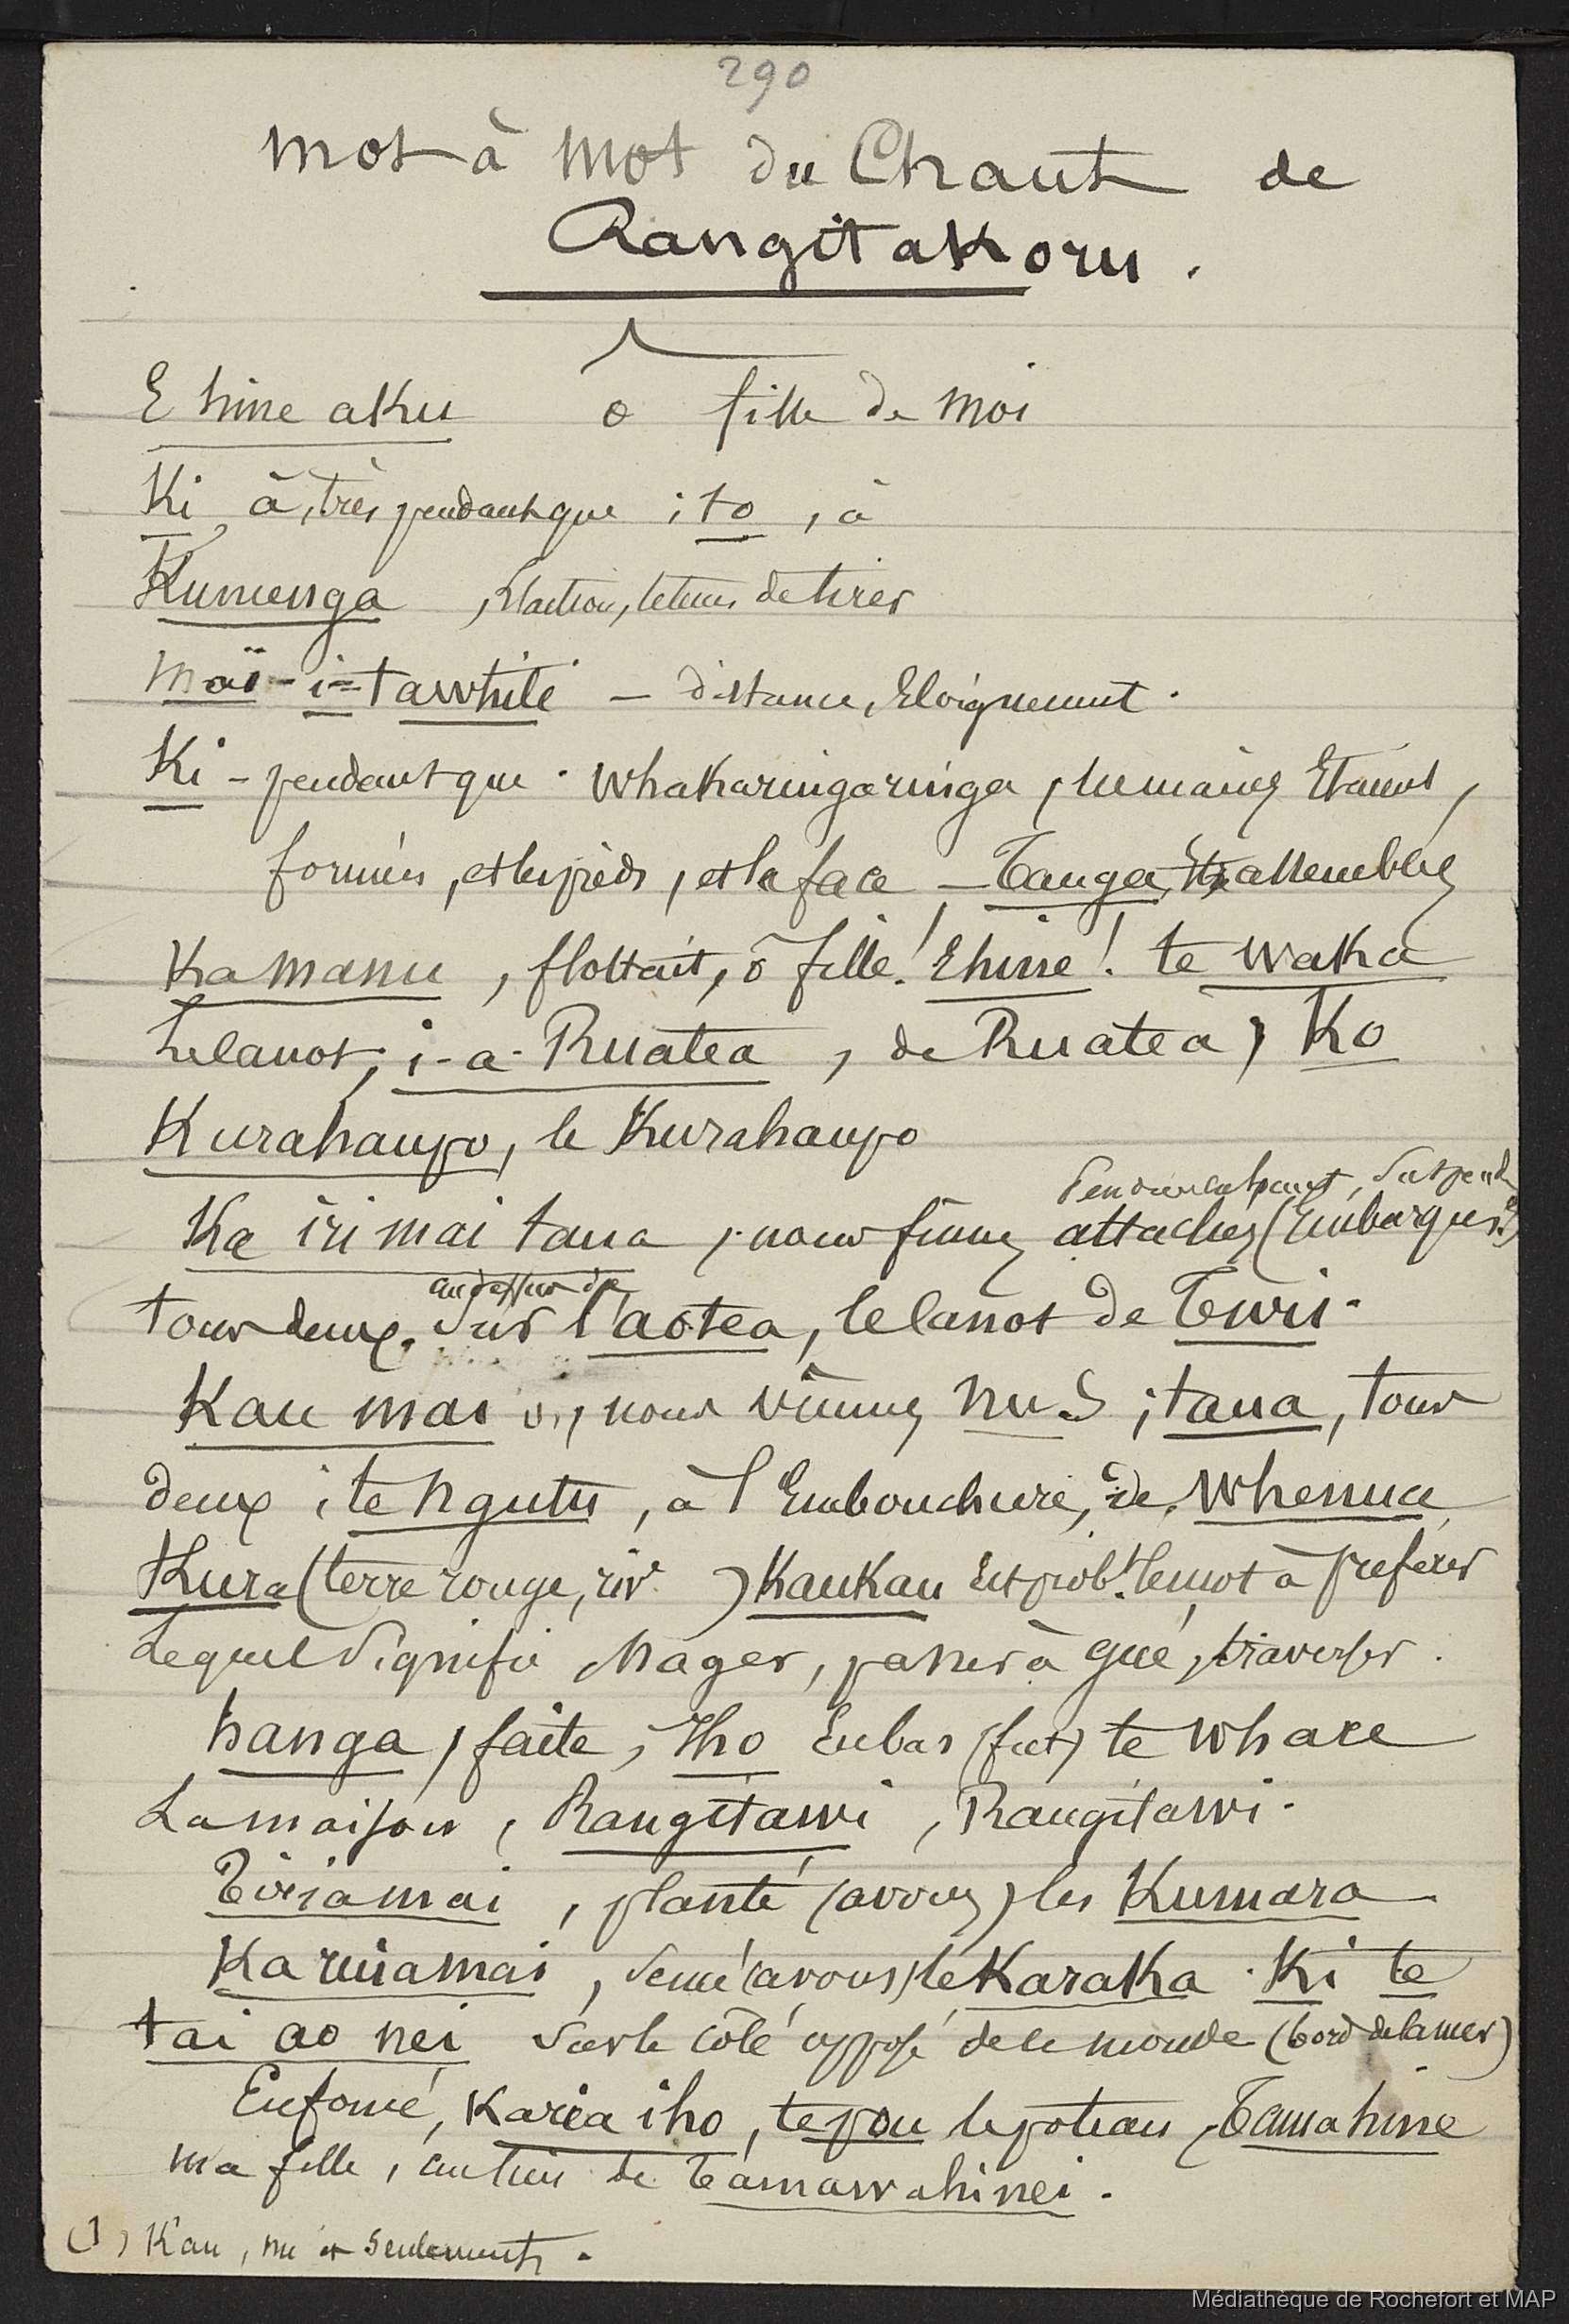 290
Mot à Mot du Chant de
Rangitakoru.
E hine aku o fille de moi
Ki, à, très, pendant que ; to, à
Kumenga, l'action, le tems de tirer
Maï - i = tawhiti - distance, Eloignement.
Ki - pendant que. Whakaringaringa, les mains Etant,
formées, et les pieds, et la face - Tanga, assemblés
Ka manu, flottait, ô fille! Ehine! te waka
Le canot, i-a-Ruatea, de Ruatea, Ko
Kurahaupo, le Kurahaupo
Pendre en haut, Suspendre
Ka iri mai taua, nous fûmes attachés (Embarqués?)
au dessus de
tous deux. Sur l'aotea, le canot de Turi.
Kau mai, nous vînmes nuS ; taua, tous
deux i te ngutu, à l'Embouchure, de, Whenua
Kura (terre rouge, riv. ) Kaukau Est probt. le mot à preferer
Lequel Signifie Nager, passer à gué, traverser.
hanga, faite, Iho En bas (fut) te Whare
La maison, Rangitawi, Rangitawi.
Tiriamai, planté (avons) les Kumara
Ka ruiamai, Semé (avons) le Karaka. Ki te
tai ao nei Sur le côté opposé de ce monde (bord de la mer)
Enfoncé, Karia iho, te pou le poteau, Tamahine
ma fille, au lieu de Tamawahinei.
(1) Kau, nu et Seulement.
Médiathèque de Rochefort et MAP